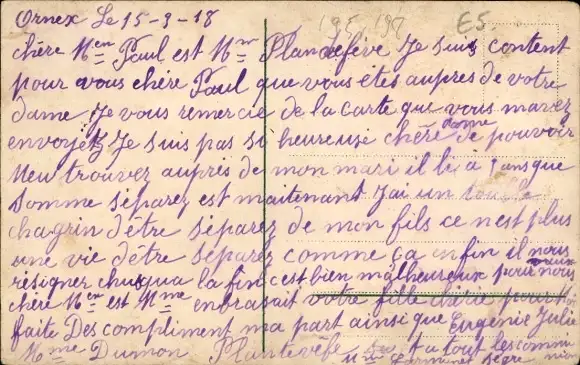 Ornex Le 15-3-18
195 198 E5.
chère Men Paul est Mme Plantefève Je suis content
pour vous chère Paul que vous êtes aupres de votre
dame Je vous remercie de la carte que vous mavez
envoyez Je suis pas si heureuse chère dame de pouvoir
meu trouvez auprès de mon mari il li a 3 ans que
Somme séparez est maitenant Jai un
chagrin dêtre séparez de mon fils ce nest plus
une vie dêtre séparez comme ça enfin il nous
résigner chusqua la fin cest bien malheureux pour nous
chère Men est Mme enbrasait votre fille chérie pour
faite Des compliment ma part ainsi que Eugénie Julie
Mme Dumon Plantevèfe a tout les